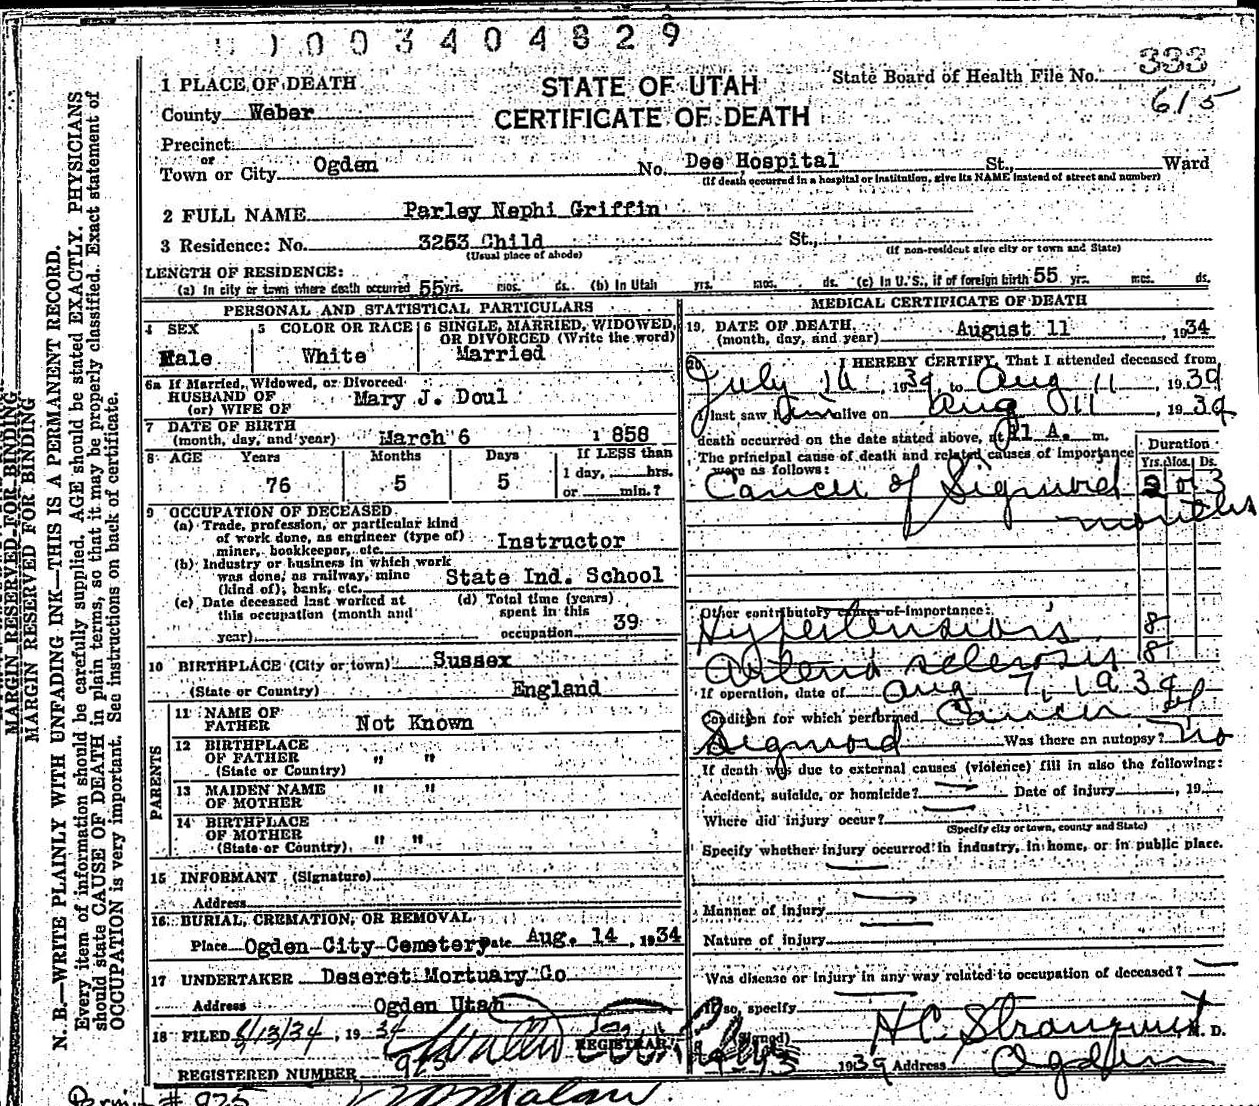 1003404829
1 PLACE OF DEATH
STATE OF UTAH
State Board of Health File No. 333
615
County Weber
CERTIFICATE OF DEATH
Precinct
or
Town or City Ogden No. Dee Hospital St., Ward
(If death occurred in a hospital or institution, give its NAME instead of street and number)
2 FULL NAME Parley Nephi Griffin
3 Residence: No. 3253 Child St.,
(Usual place of abode) (If non-resident give city or town and State)
LENGTH OF RESIDENCE:
(a) In city or town where death occurred 55 yrs. mos. ds. (b) In Utah yrs. mos. ds. (c) In U. S., if of foreign birth 55 yrs. mos. ds.
PERSONAL AND STATISTICAL PARTICULARS
4 SEX 5 COLOR OR RACE 6 SINGLE, MARRIED, WIDOWED, OR DIVORCED (Write the word)
Male White Married
6a If Married, Widowed, or Divorced
HUSBAND OF
(or) WIFE OF Mary J. Doul
7 DATE OF BIRTH
(month, day, and year) March 6 1858
8 AGE Years Months Days If LESS than
1 day, hrs.
76 5 5 or min.?
9 OCCUPATION OF DECEASED
(a) Trade, profession, or particular kind
of work done, as engineer (type of)
miner, bookkeeper, etc. Instructor
(b) Industry or business in which work
was done, as railway, mine
(kind of); bank, etc. State Ind. School
(c) Date deceased last worked at
this occupation (month and
year)
(d) Total time (years)
spent in this
occupation 39
10 BIRTHPLACE (City or town) Sussex
(State or Country) England
PARENTS
11 NAME OF
FATHER Not Known
12 BIRTHPLACE
OF FATHER " "
(State or Country)
13 MAIDEN NAME
OF MOTHER " "
14 BIRTHPLACE
OF MOTHER
(State or Country) " "
15 INFORMANT (Signature)
Address
16 BURIAL, CREMATION, OR REMOVAL
Place Ogden City Cemetery Date Aug. 14, 1934
17 UNDERTAKER Deseret Mortuary Co
Address Ogden Utah
18 FILED 8/13/34, 1934
REGISTRAR
REGISTERED NUMBER 973
Permit # 925
MEDICAL CERTIFICATE OF DEATH
19. DATE OF DEATH
(month, day, and year) August 11, 1934
20 I HEREBY CERTIFY, That I attended deceased from
July 14, 1934, to Aug 11, 1934
I last saw him alive on Aug 11, 1934
death occurred on the date stated above, at 11 A. m.
The principal cause of death and related causes of importance
were as follows:
Duration
Yrs. Mos. Ds.
Cancer of Sigmoid 2 or 3
months
Other contributory causes of importance:
Hypertension 8
Arterio sclerosis 8
If operation, date of Aug 7, 1934
Condition for which performed Cancer of
Sigmoid Was there an autopsy? No
If death was due to external causes (violence) fill in also the following:
Accident, suicide, or homicide? Date of injury , 19
Where did injury occur?
(Specify city or town, county and State)
Specify whether injury occurred in industry, in home, or in public place.
Manner of injury
Nature of injury
Was disease or injury in any way related to occupation of deceased?
If so, specify
(Signed) H C Stranquist M. D.
1934 Address Ogden
MARGIN RESERVED FOR BINDING
MARGIN RESERVED FOR BINDING
N. B.—WRITE PLAINLY WITH UNFADING INK—THIS IS A PERMANENT RECORD.
Every item of information should be carefully supplied. AGE should be stated EXACTLY. PHYSICIANS
should state CAUSE OF DEATH in plain terms, so that it may be properly classified. Exact statement of
OCCUPATION is very important. See instructions on back of certificate.